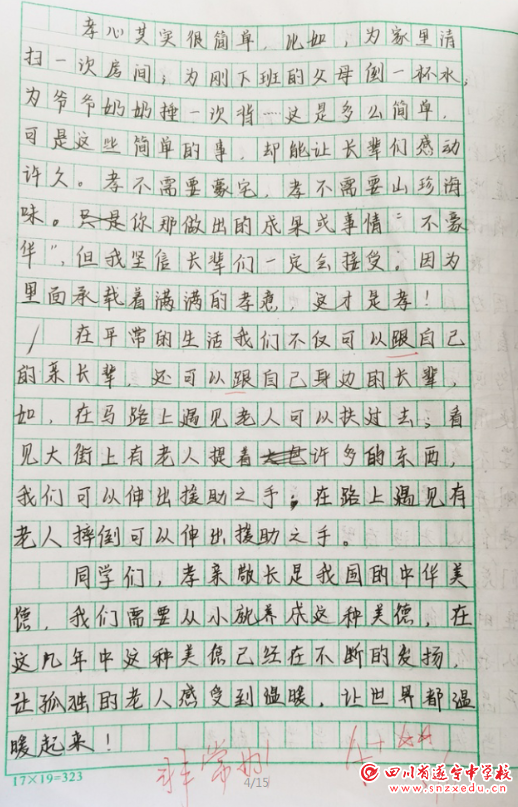 孝心其实很简单，比如，为家里清
扫一次房间；为刚下班的父母倒一杯水，
为爷爷奶奶捶一次背……这是多么简单，
可是这些简单的事，却能让长辈们感动
许久。孝不需要豪宅，孝不需要山珍海
味。你那做出的成果或事情“不豪
华”，但我坚信长辈们一定会接受，因为
里面承载着满满的孝意，这才是孝！
在平常的生活我们不仅可以跟自己
的亲长辈，还可以跟自己身边的长辈，
如，在马路上遇见老人可以扶过去；看
见大街上有老人提着许多的东西，
我们可以伸出援助之手；在路上遇见有
老人摔倒可以伸出援助之手。
同学们，孝亲敬长是我国的中华美
德，我们需要从小就养成这种美德，在
这几年中这种美德已经在不断的发扬，
让孤独的老人感受到温暖，让世界都温
暖起来！
非常好！
17×19=323
4/15
四川省遂宁中学校
www.snzxedu.cn